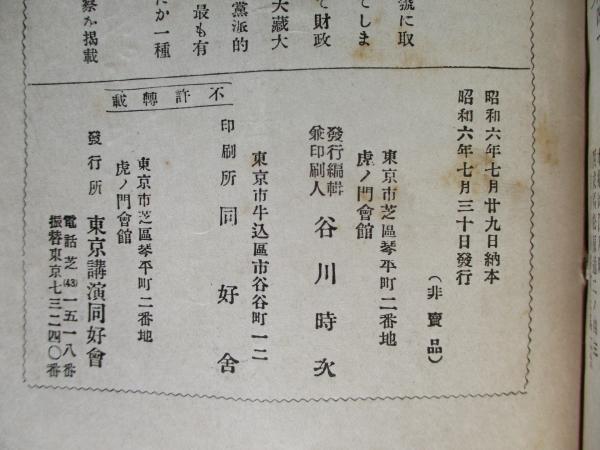 號に取
てしま
て財政
大藏大
黨派的
最も有
たか一種
察を揭載
昭和六年七月廿九日納本
昭和六年七月三十日發行
(非賣品)
東京市芝區琴平町二番地
虎ノ門會館
發行編輯
兼印刷人 谷川時次
東京市牛込區市谷谷町一二
印刷所 同好舍
不許轉載
東京市芝區琴平町二番地
虎ノ門會館
發行所 東京講演同好會
電話芝(43)一五一八番
振替東京七三二四〇番